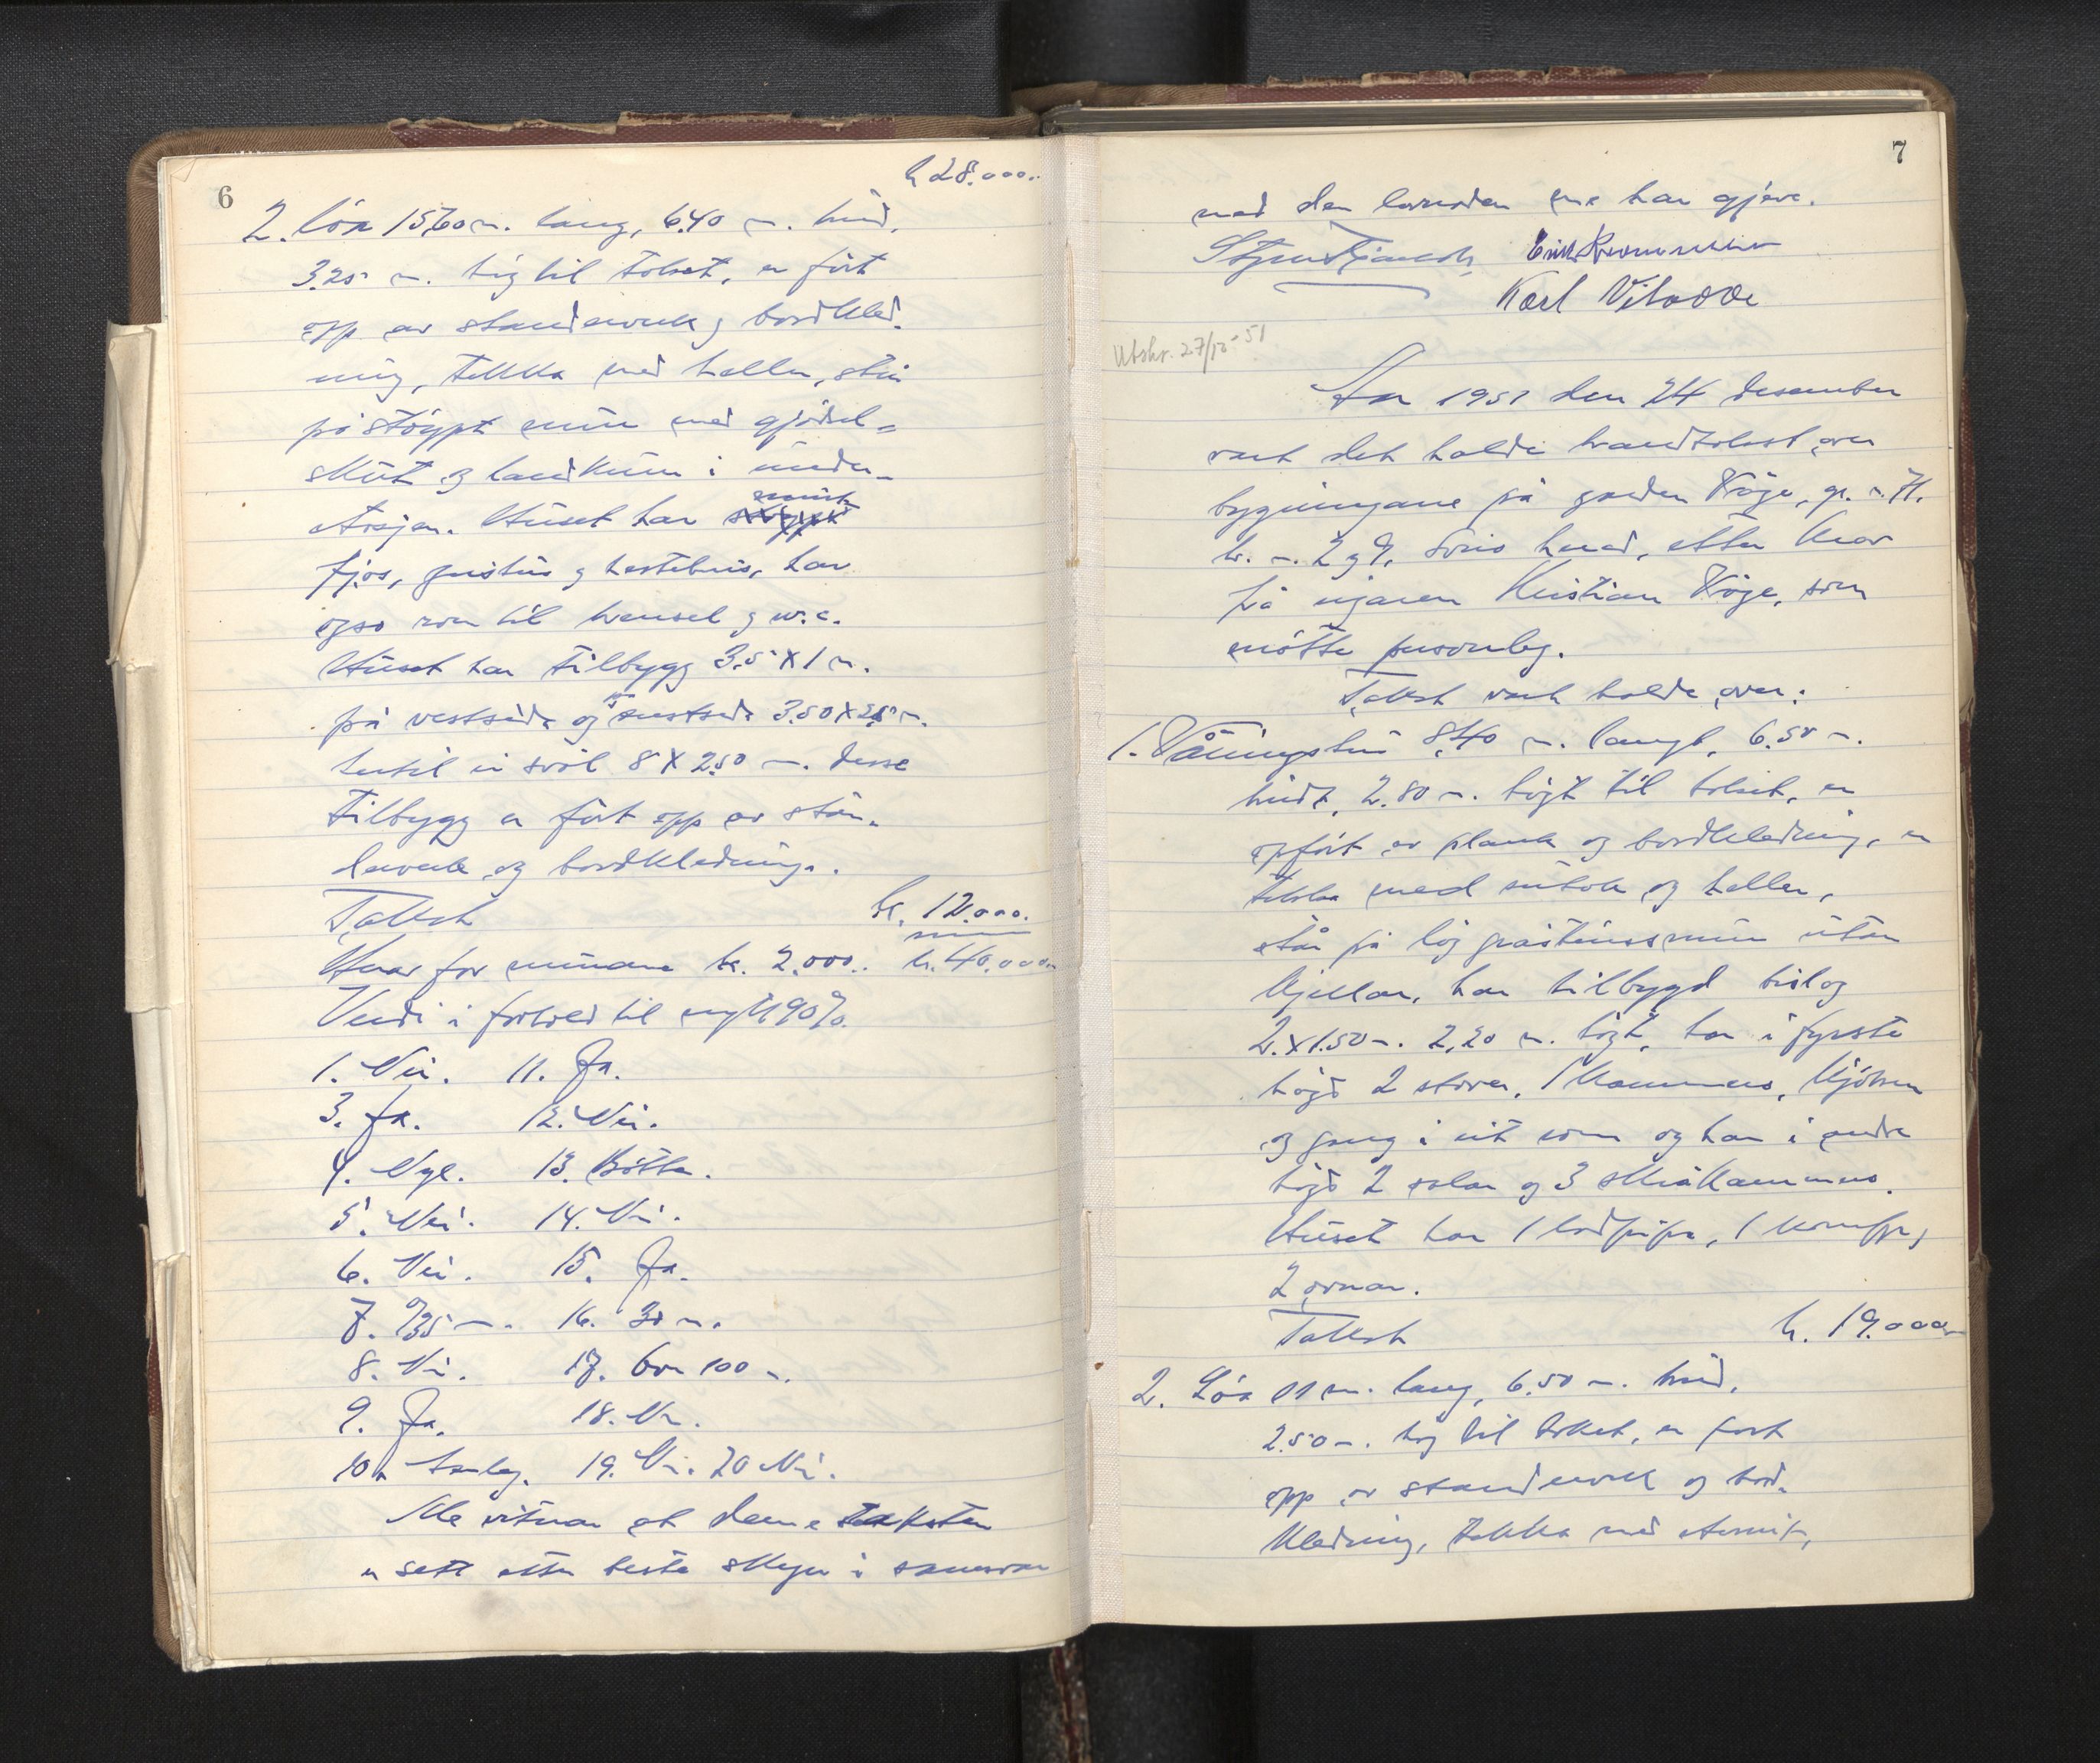 6
k 28.000..
2. Löa 15,60 m. lang, 6.40 m. breid,
3.25 m. høg til toket, er fört
opp av standerverk og bordkled-
ning, tekka med heller, står
på stöypt mur med gjödsel-
skut og landkum i under-
etasjen. Huset har innreidt
fjos, grishus og hestehus, har
ogso rom til brensel og w.c.
Huset har tilbygg 3.5 X 1 m.
på vestsida og på austsida 3.50 X m.
hertil ei sval 8 X 2.50 m. Desse
tilbygg er fört opp av stan-
derverk og bordkledning.
Takst kr. 12.000.
Herav for murane kr. 2.000.. kr. 40.000..
Verdi i forhold til nytt 90%.
1. Nei. 11. Ja.
3. Ja. 12. Nei.
4. Nye. 13. Bötta.
5. Nei. 14. Nei.
6. Nei. 15. Ja.
7. 35 m. 16. 30 m.
8. Nei. 17. Over 100 m.
9. Ja. 18. Nei.
10. 19. Nei. 20 Nei.
Me vitnar at denne taksten
er sett etter beste skyn i samsvar
7
med den lovnaden me har gjeve.
Karl
Utskr. 27/12-51
Aar 1951 den 24 desember
vart det halde brandtakst over
bygningane på garden Köge, gr. n. 71.
br. n. 2 og 9, herad, etter krav
frå eigaren Kristian Köge, som
mötte personleg.
Takst vart halde over:
1. Våningshus 8,40 m. langt, 6.50 m.
breidt, 2.80 m. högt til toket, er
oppfört av plank og bordkledning, er
tekka med og heller,
står på låg gråsteinsmur utan
kjellar, har tilbygd bislag
2. X 1.50 m. 2,20 m. högt, har i fyrste
högd 2 stover, 1 kammers, kjöken
og gang i eit rom og har i andre
högd 2 salar og 3 skråkammers.
Huset har 1 lodpipa, 1 komfyr,
2 ovnar.
Takst kr. 19.000..
2. Löa 11 m. lang, 6.50 m. breid,
2.50 m. høg til toket, er fört
opp av standerverk og bord-
kledning, tekka med eternit,